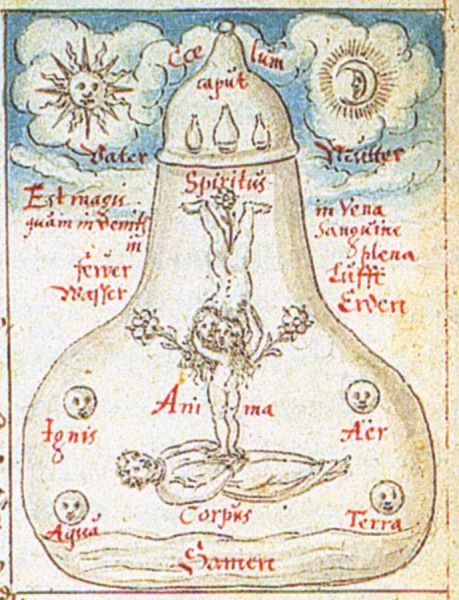 Coe lum
caput
Vater
Mutter
Spiritus
Est magis
quam in
in
fewer
Wasser
in Vena
sanguine
plena
Lufft
Erden
Ani ma
Ignis
Aër
Corpus
Aqua
Terra
Samen